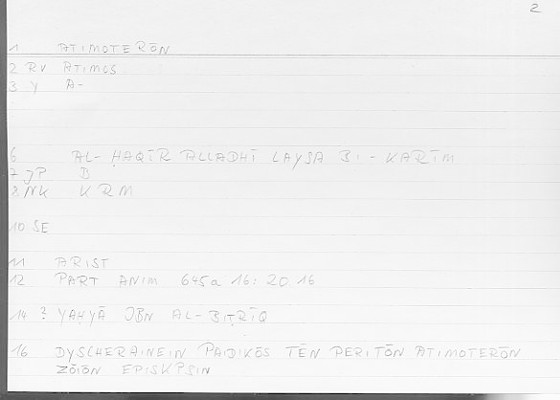 2
1 ATIMOTERŌN
2 RV ATIMOS
3 Y A-
6 AL-ḤAQĪR ALLADHĪ LAYSA BI-KARĪM
7 JP D
8 NK KRM
10 SE
11 ARIST
12 PART ANIM 645a 16: 20.16
14 ? YAḤYĀ IBN AL-BIṬRĪQ
16 DYSCHERAINEIN PAIDIKŌS TĒN PERI TŌN ATIMOTERŌN
ZŌIŌN EPISKPSIN